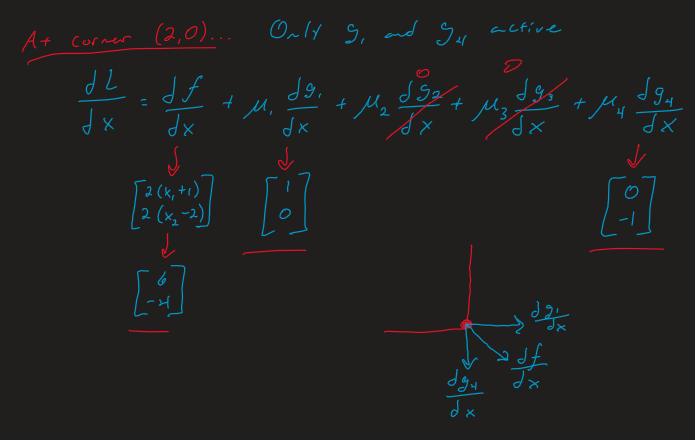 At corner (2,0)... Only g₁ and g₄ active
dL/dx = df/dx + μ₁ dg₁/dx + μ₂ dg₂/dx + μ₃ dg₃/dx + μ₄ dg₄/dx
0 0
[2(x₁+1) 2(x₂-2)] [1 0] [0 -1]
[6 -4]
dg₁/dx
df/dx
dg₄/dx